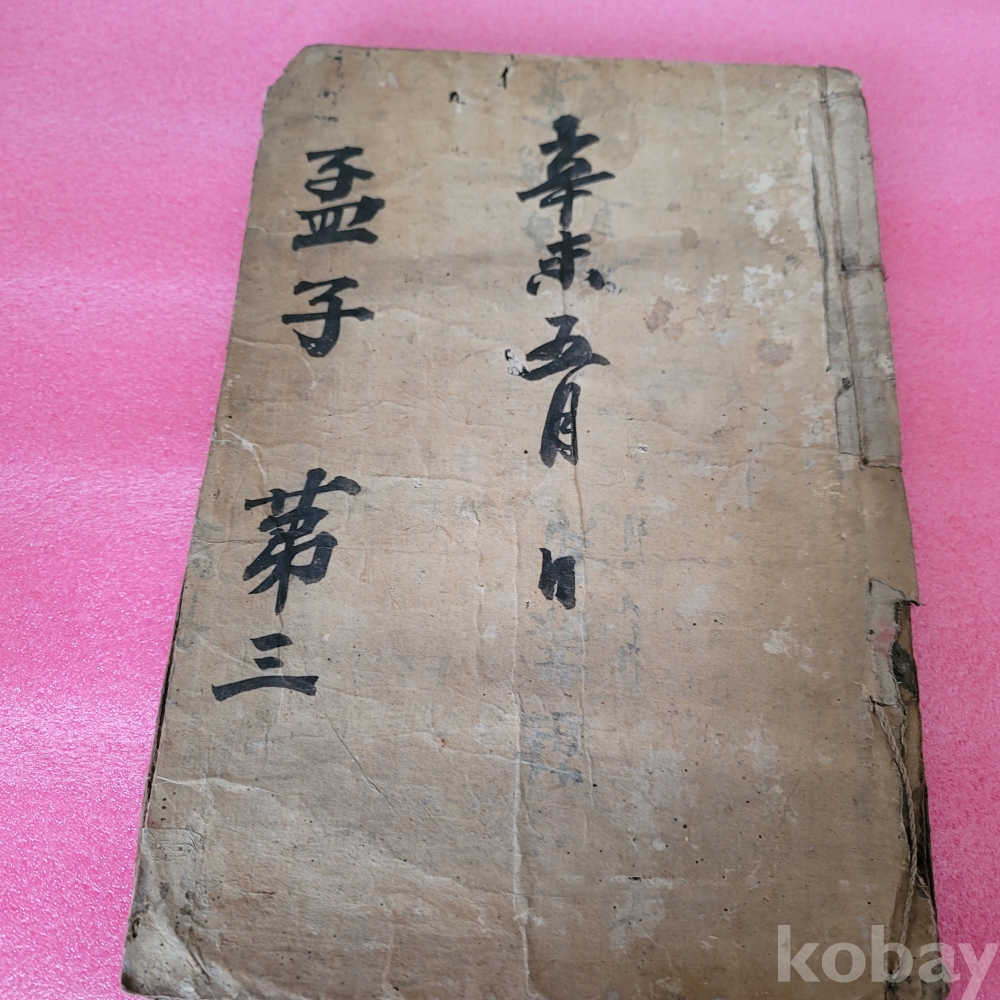 辛未五月 日
孟子 苐三
kobay